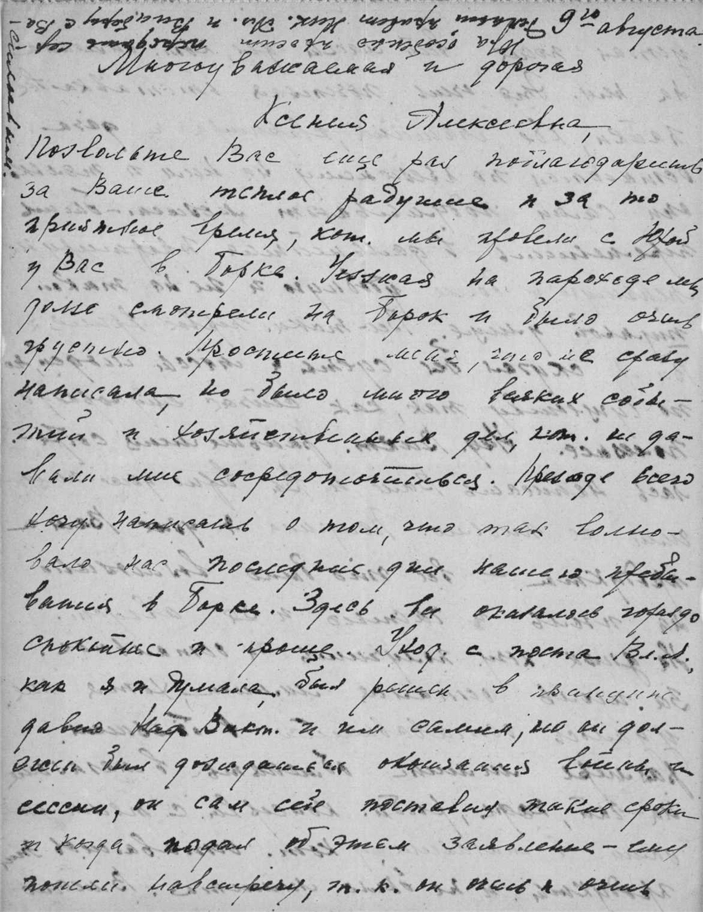 9го августа.
Многоуважаемая и дорогая
Ксения Алексеевна,
Позвольте Вас еще раз поблагодарить
за Ваше теплое радушие и за то
приятное время, кот. мы провели с
у Вас в Борке. Уезжая на пароходе мы
долго смотрели на Борок и было очень
грустно. Простите меня, что не сразу
написала, но было много всяких собы-
тий и хозяйственных дел, кот. не да-
вали мне сосредоточиться. Прежде всего
хочу написать о том, что так волно-
вало нас последние дни нашего пребы-
вания в Борке. Здесь все оказалось гораздо
спокойнее и проще. Уход с поста Вл. Л.,
как я и думала, был решен в принципе
давно Над. Викт. и им самим, но он дол-
жен был дожидаться окончания войны и
сессии, он сам себе поставил такие сроки
и когда подал об этом заявление – ему
пошли навстречу, т. к. он очень и очень